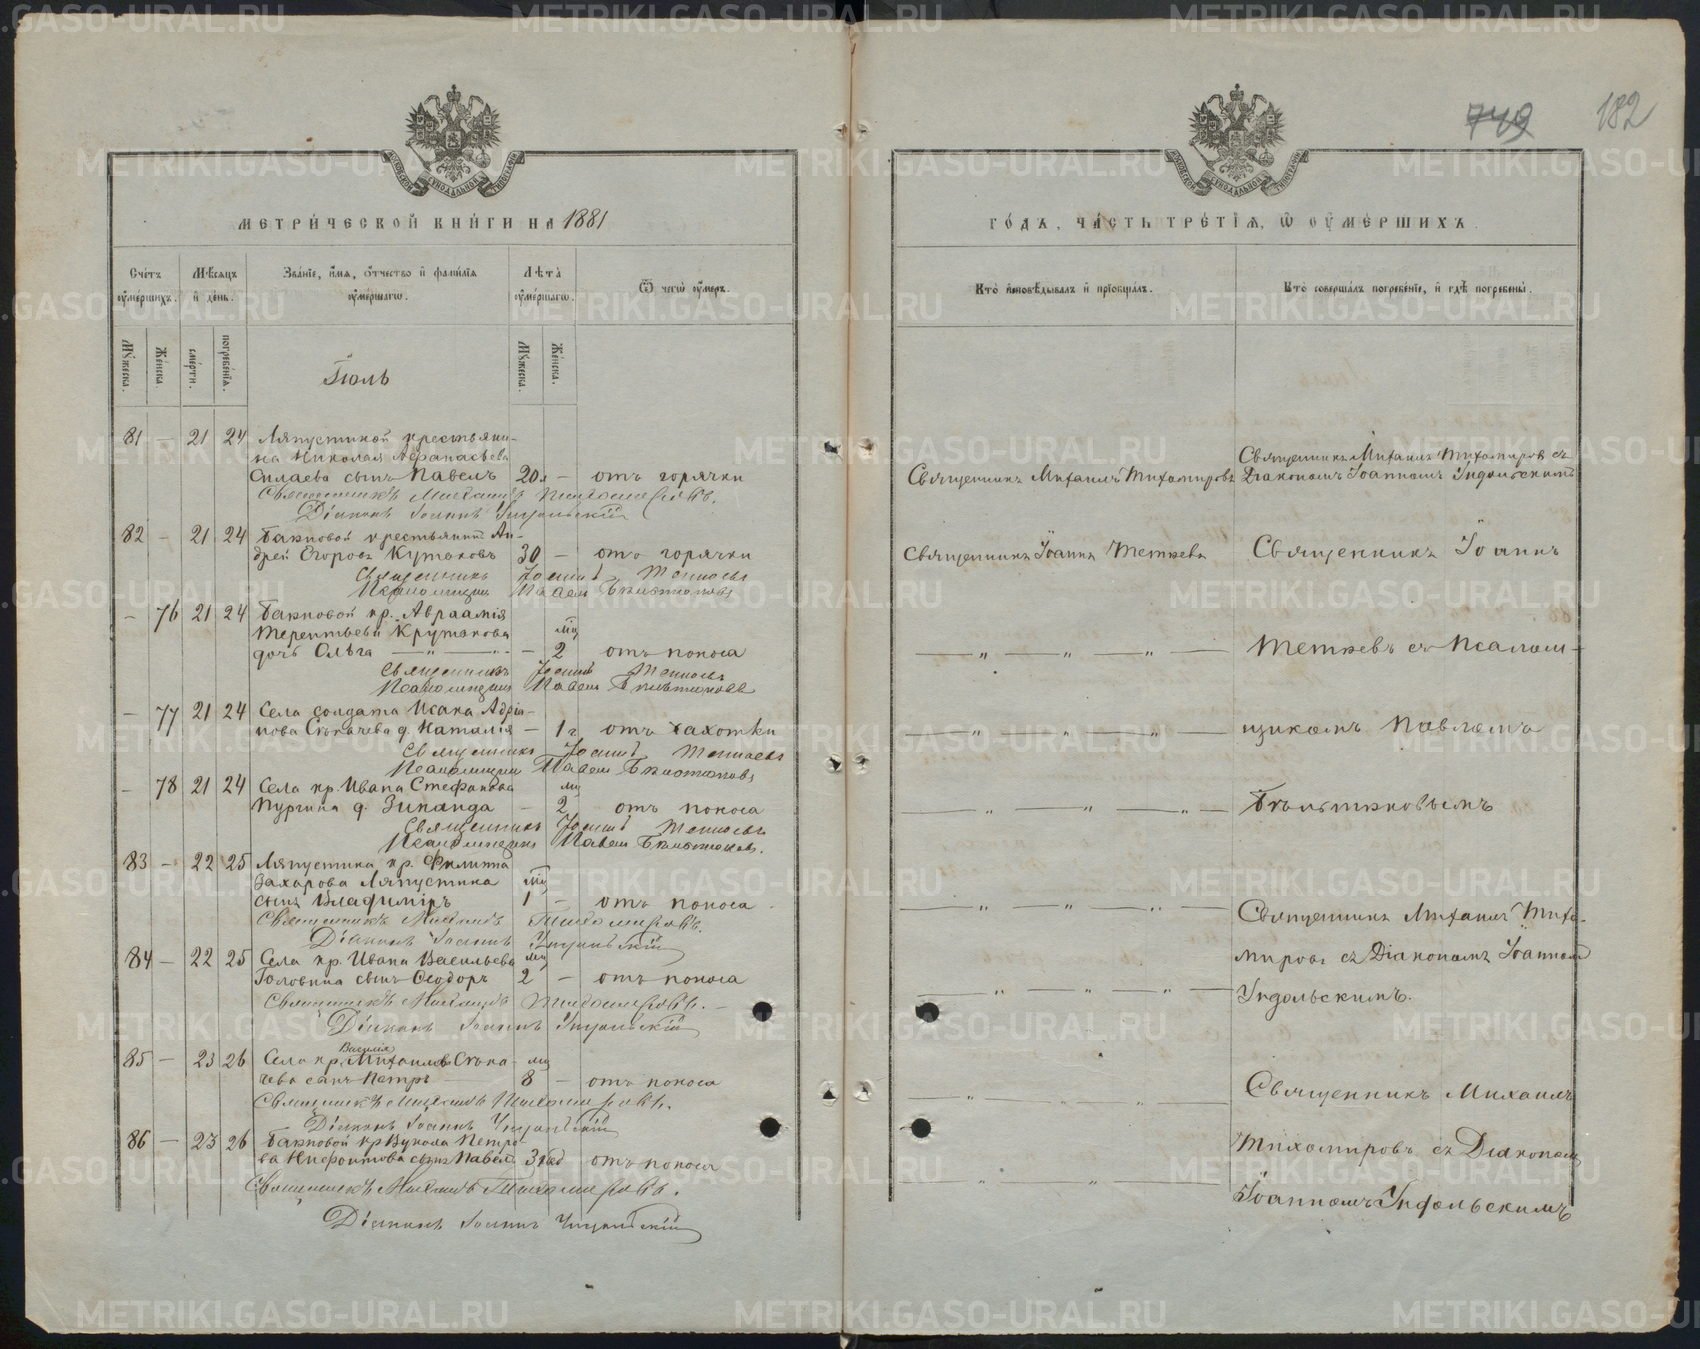 749 182
МЕТРИЧЕСКОЙ КНИГИ НА 1881
Счетъ умершихъ.
Мѣсяцъ и день.
Званіе, имя, отчество и фамилія умершаго.
Лѣта умершаго.
Ѿ чегѡ умеръ.
Мужеска.
Женска.
смерти.
погребенія.
Мужеска.
Женска.
Іюль
81 — 21 24 Ляпустиной крестьяни-
на Николая Афанасьева
Силаева сынъ Павелъ 20 л — отъ горячки
Священникъ Михаилъ Тихомировъ.
Діаконъ Іоаннъ Ундольскій
82 — 21 24 Баиновой крестьянинъ Ан-
дрей Егоровъ 30 — отъ горячки
Священникъ Іоаннъ
Псаломщикъ Павелъ
— 76 21 24 Баиновой кр. Авраамія
Терентьева мц
дочь Ольга — „ — „ — — 2 отъ поноса
Священникъ Іоаннъ
Псаломщикъ Павелъ
— 77 21 24 Села солдата Исака Адріа-
нова д. Наталія — 1 г отъ чахотки
Священникъ Іоаннъ
Псаломщикъ Павелъ
— 78 21 24 Села кр. Ивана Стефанова мц
Пургина д. Зинаида — 2 отъ поноса
Священникъ Іоаннъ
Псаломщикъ Павелъ
83 — 22 25 Ляпустина кр. Филиппа
Захарова Ляпустина мц
сынъ Владиміръ 1 — отъ поноса
Священникъ Михаилъ Тихомировъ.
Діаконъ Іоаннъ Ундольскій
84 — 22 25 Села кр. Ивана Васильева мц
Головина сынъ Ѳеодоръ 2 — отъ поноса
Священникъ Михаилъ Тихомировъ. —
Діаконъ Іоаннъ Ундольскій
Василія
85 — 23 26 Села кр. Михаилова мц
сынъ Петръ — 8 — отъ поноса
Священникъ Михаилъ Тихомировъ.
Діаконъ Іоаннъ Ундольскій
86 — 23 26 Баиновой кр Вукола Петро-
ва Нифонтова сынъ Павелъ 3 отъ поноса
Священникъ Михаилъ Тихомировъ.
Діаконъ Іоаннъ Ундольскій
ГОДЪ, ЧАСТЬ ТРЕТІЯ, Ѡ УМЕРШИХЪ.
Кто исповѣдывалъ и пріобщалъ.
Кто совершалъ погребеніе, и гдѣ погребены.
Священникъ Михаилъ Тихомировъ
Священникъ Михаилъ Тихомировъ съ
Діакономъ Іоанномъ Ундольскимъ
Священникъ Іоаннъ
Священникъ Іоаннъ
съ Псалом-
щикомъ Павломъ
Священникъ Михаилъ Тихо-
мировъ съ Діакономъ Іоанномъ
Ундольскимъ.
Священникъ Михаилъ
Тихомировъ съ Діакономъ
Іоанномъ Ундольскимъ
METRIKI.GASO-URAL.RU